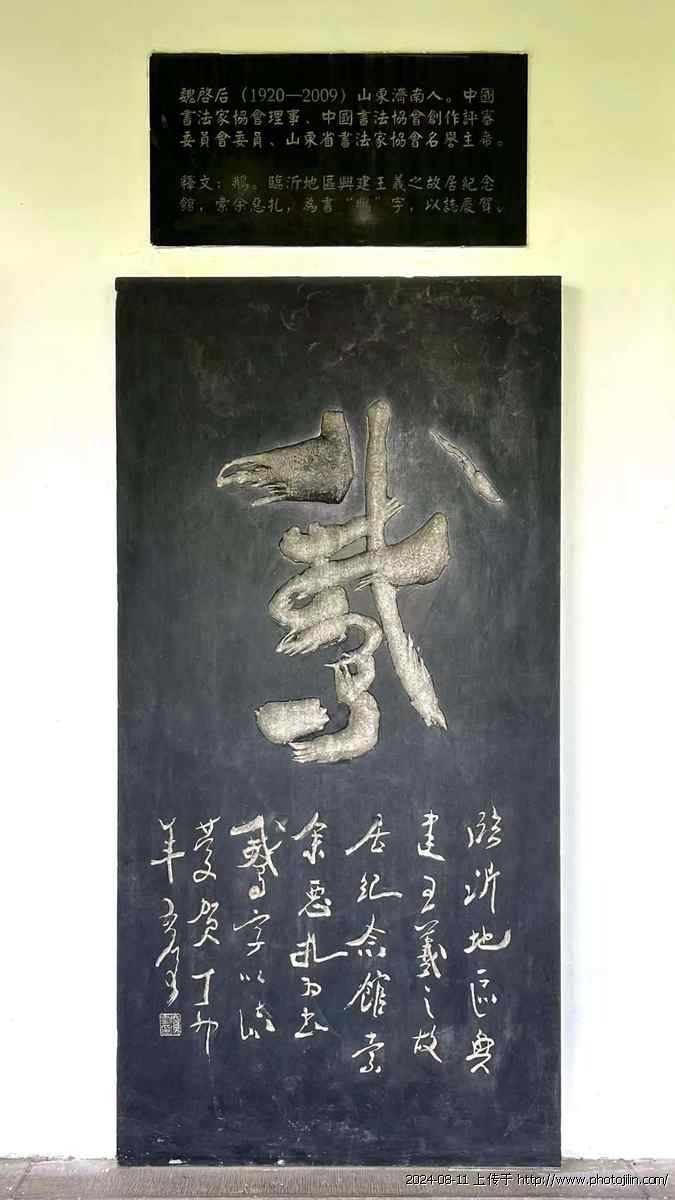 魏启后（1920—2009）山東濟南人。中國
書法家協會理事、中國書法協會創作評審
委員會委員、山東省書法家協會名譽主席。
釋文：鵝。臨沂地區興建王羲之故居紀念
館，索余惡扎，為書“鵝”字，以誌慶賀。
鵝
臨沂地區興
建王羲之故
居紀念館索
余惡扎为书
鵝字以誌
慶贺丁卯
年启后
2024-08-11 上传于 http://www.photojilin.com/